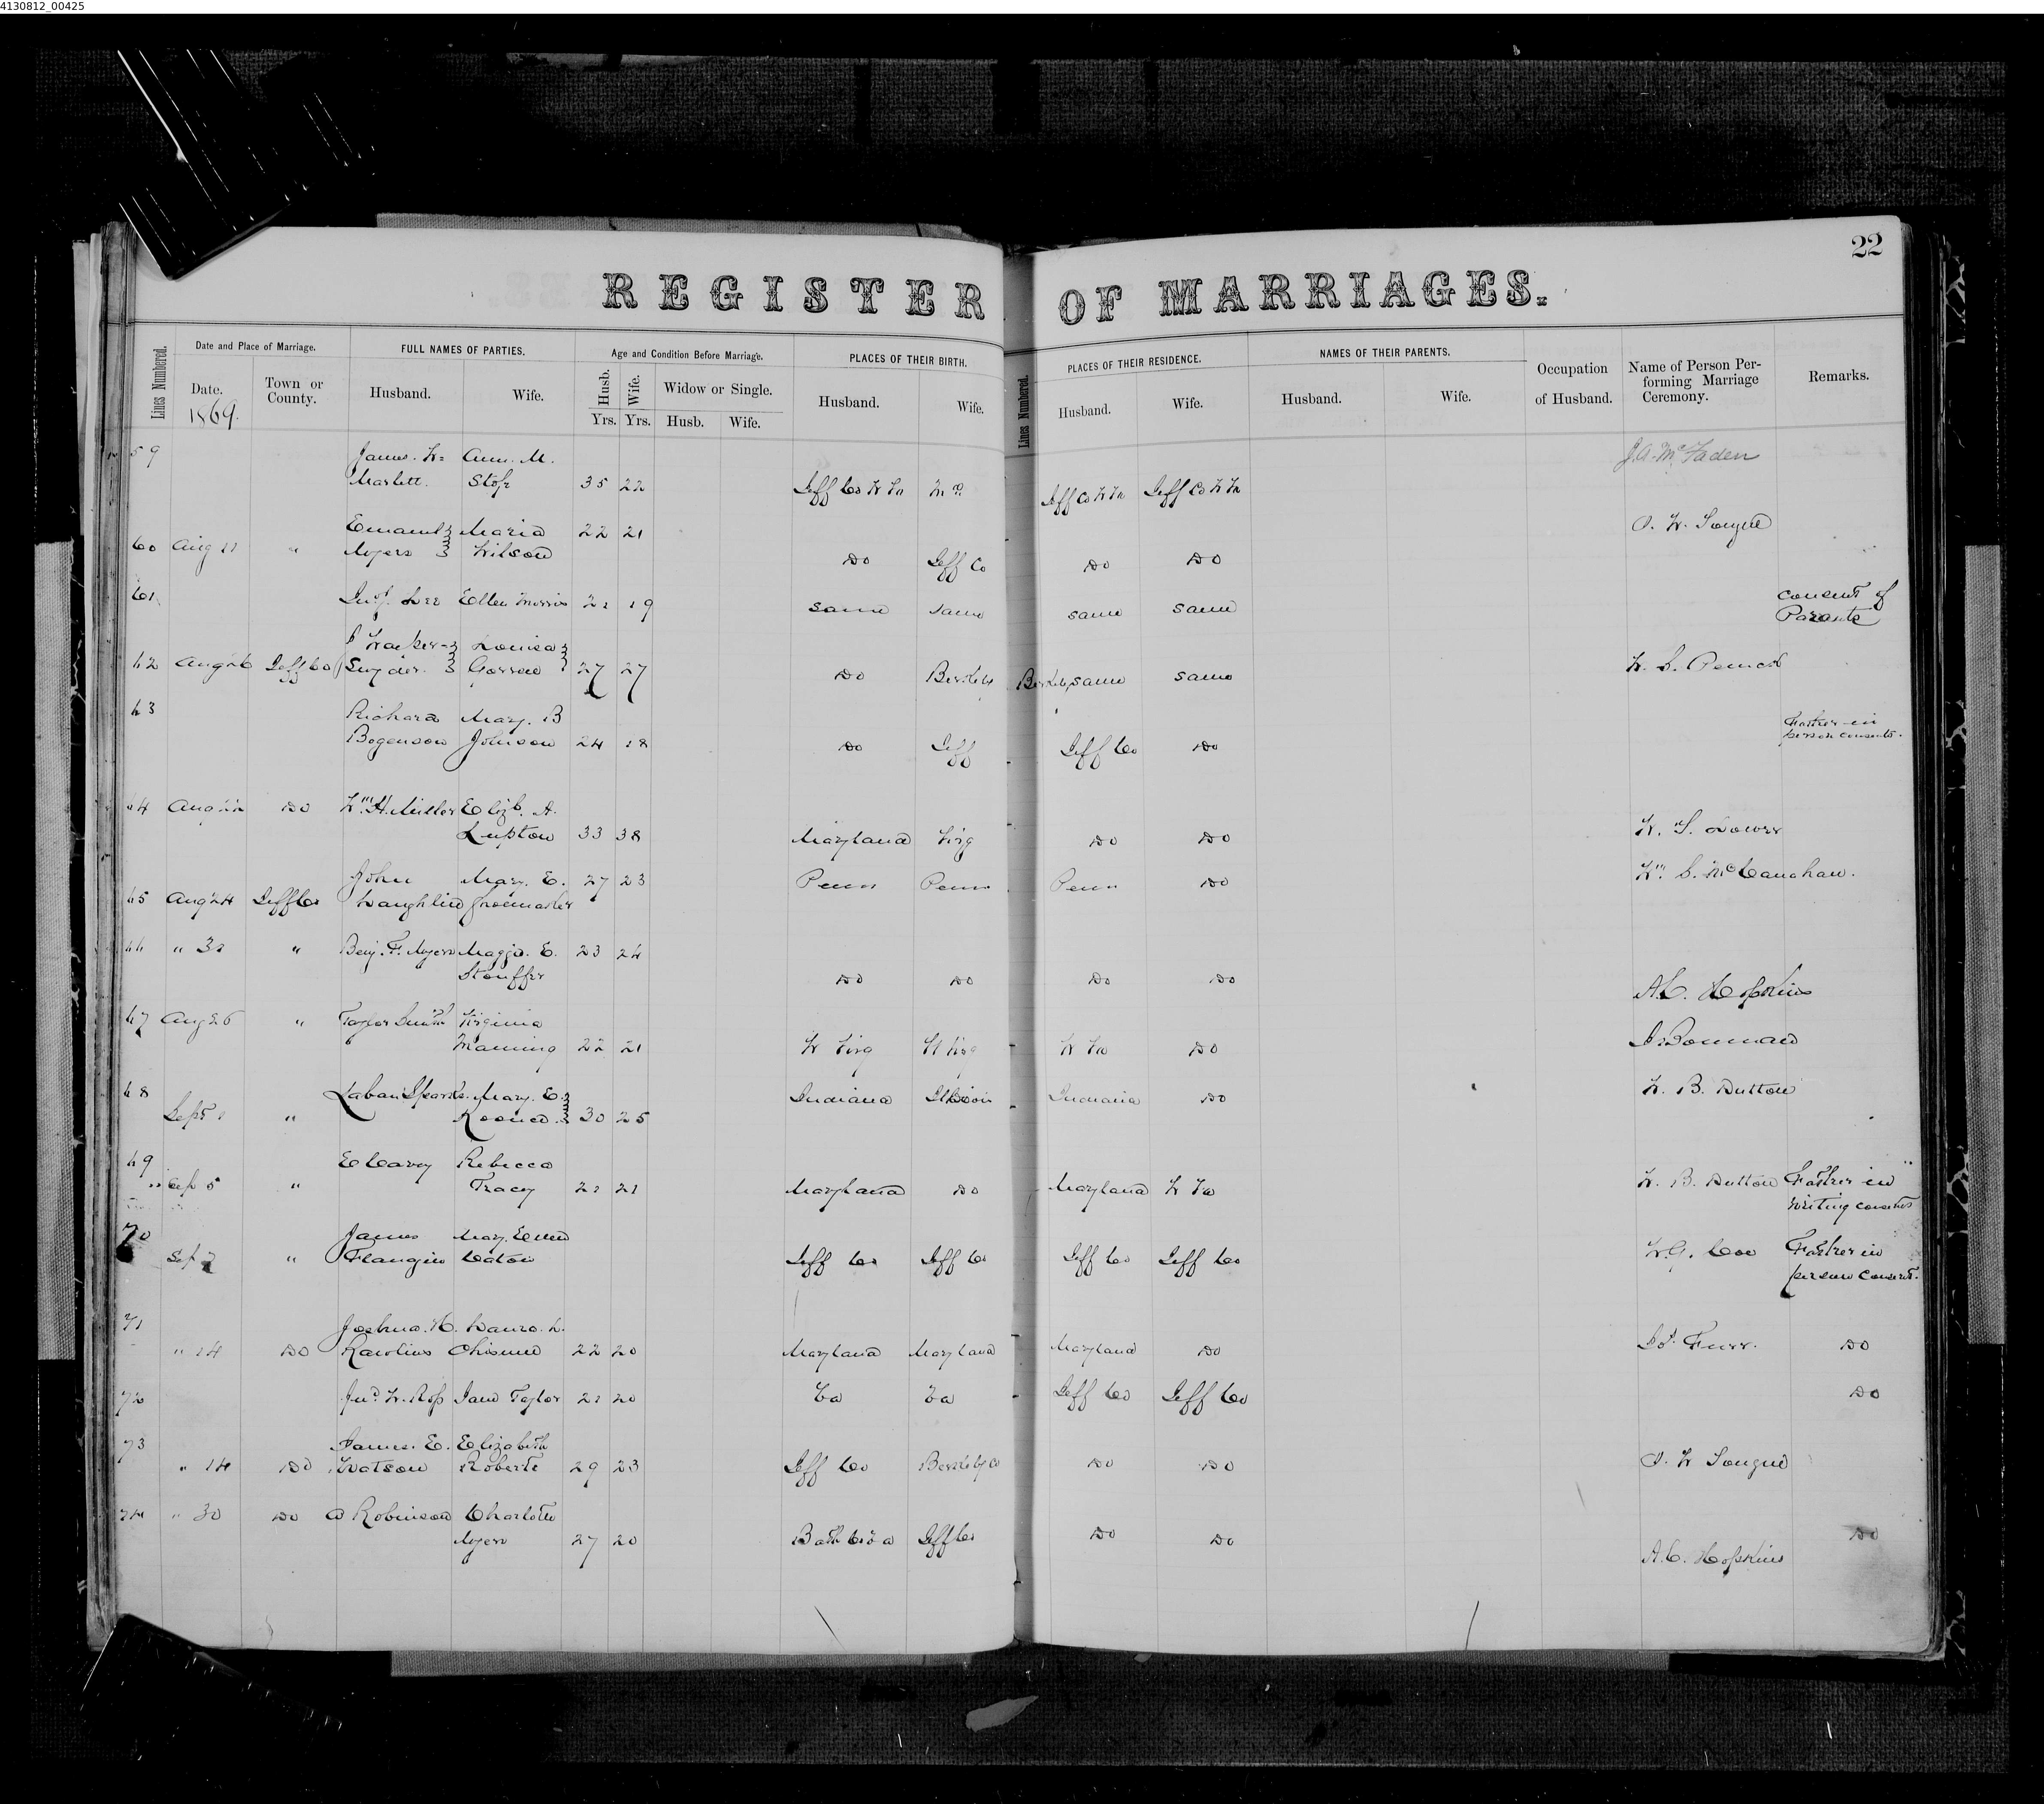 4130812_00425
22
REGISTER OF MARRIAGES.
Lines Numbered.
Date and Place of Marriage.
FULL NAMES OF PARTIES.
Age and Condition Before Marriage.
PLACES OF THEIR BIRTH.
Lines Numbered.
PLACES OF THEIR RESIDENCE.
NAMES OF THEIR PARENTS.
Occupation of Husband.
Name of Person Performing Marriage Ceremony.
Remarks.
Date. 1869.
Town or County.
Husband.
Wife.
Husb. Yrs.
Wife. Yrs.
Widow or Single.
Husb.
Wife.
Husband.
Wife.
Husband.
Wife.
Husband.
Wife.
59 James. W= Ann. M. J.A. McFaden
Marlett. 35 22 Jeff Co W Va Jeff Co W Va Jeff Co W Va
60 Aug 11 " Myers Maria Wilson 22 21 Do Jeff Co Do Do
61 Lee Ellen Morris 21 19 same same same same consent of Parents
62 Aug 26 Jeff Co Snyder Louisa 27 27 Do same same
63 Richard Bogenson Mary. B Johnson 24 18 Do Jeff Jeff Co Do Father in person consents.
64 Do Wm H. Miller Elizb. A. Lupton 33 38 Maryland Virg Do Do
65 Aug 24 Jeff Co John Laughlin Mary. E. 27 23 Penn Penn Penn Do
66 " " Benj. F. Myers Maggie. E. Stouffer 23 24 Do Do Do Do A.C. Hopkins
67 Aug 26 " Taylor Smith Virginia Manning 22 21 W Virg W Virg W Va Do
68 Sept 1 " Laban Sparks. Mary. E. 30 25 Indiana Indiana Do W. B. Dutton
69 Sep 5 " Rebecca Tracy 21 21 Maryland Do Maryland W Va W. B. Dutton Father in writing consents
70 Sep " James Flangin Mary. Ellen Eaton Jeff Co Jeff Co Jeff Co Jeff Co Father in person consent.
71 " 14 Do Joshua. H. Laura. L. 22 20 Maryland Maryland Maryland Do Do
72 Jno. W. Ross Jane Taylor 21 20 Va Va Jeff Co Jeff Co Do
73 " 14 Do James. E. Watson Elizabeth Roberts 29 23 Jeff Co Do Do
74 " 30 Do Robinson Charlotte Myers 27 20 Bath Co Va Jeff Co Do Do A.C. Hopkins Do